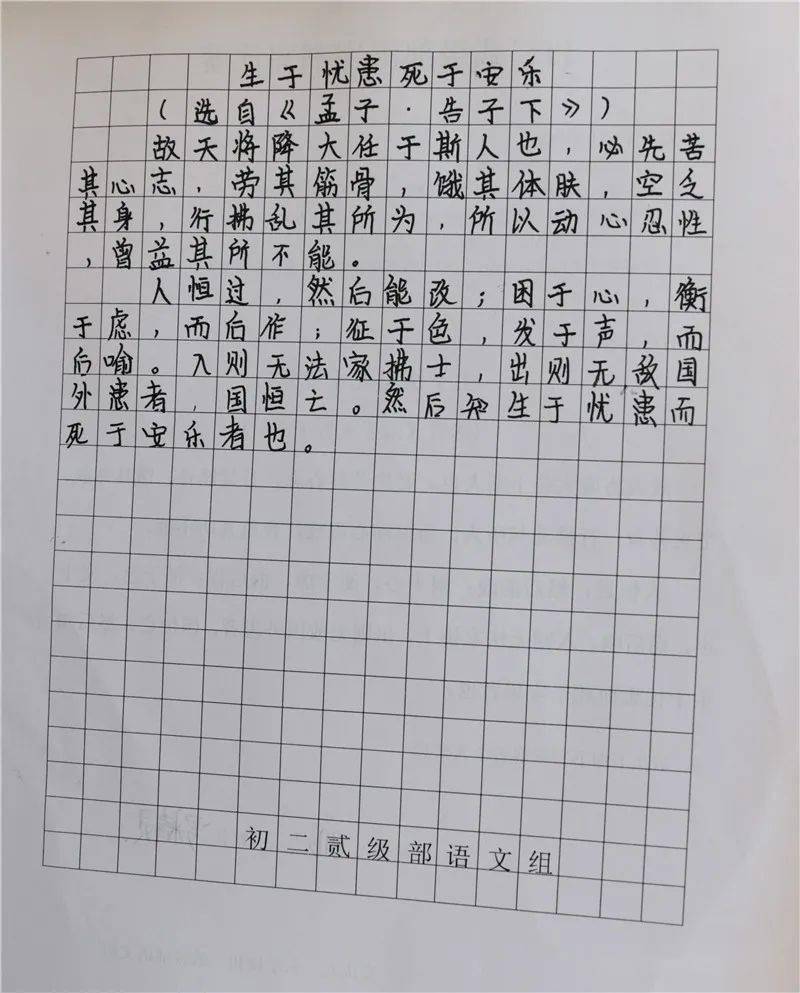 生于忧患死于安乐
（选自《孟子·告子下》）
故天将降大任于斯人也，必先苦
其心志，劳其筋骨，饿其体肤，空乏
其身，行拂乱其所为，所以动心忍性
，曾益其所不能。
人恒过，然后能改；困于心，衡
于虑，而后作；征于色，发于声，而
后喻。入则无法家拂士，出则无敌国
外患者，国恒亡。然后知生于忧患而
死于安乐者也。
初二贰级部语文组